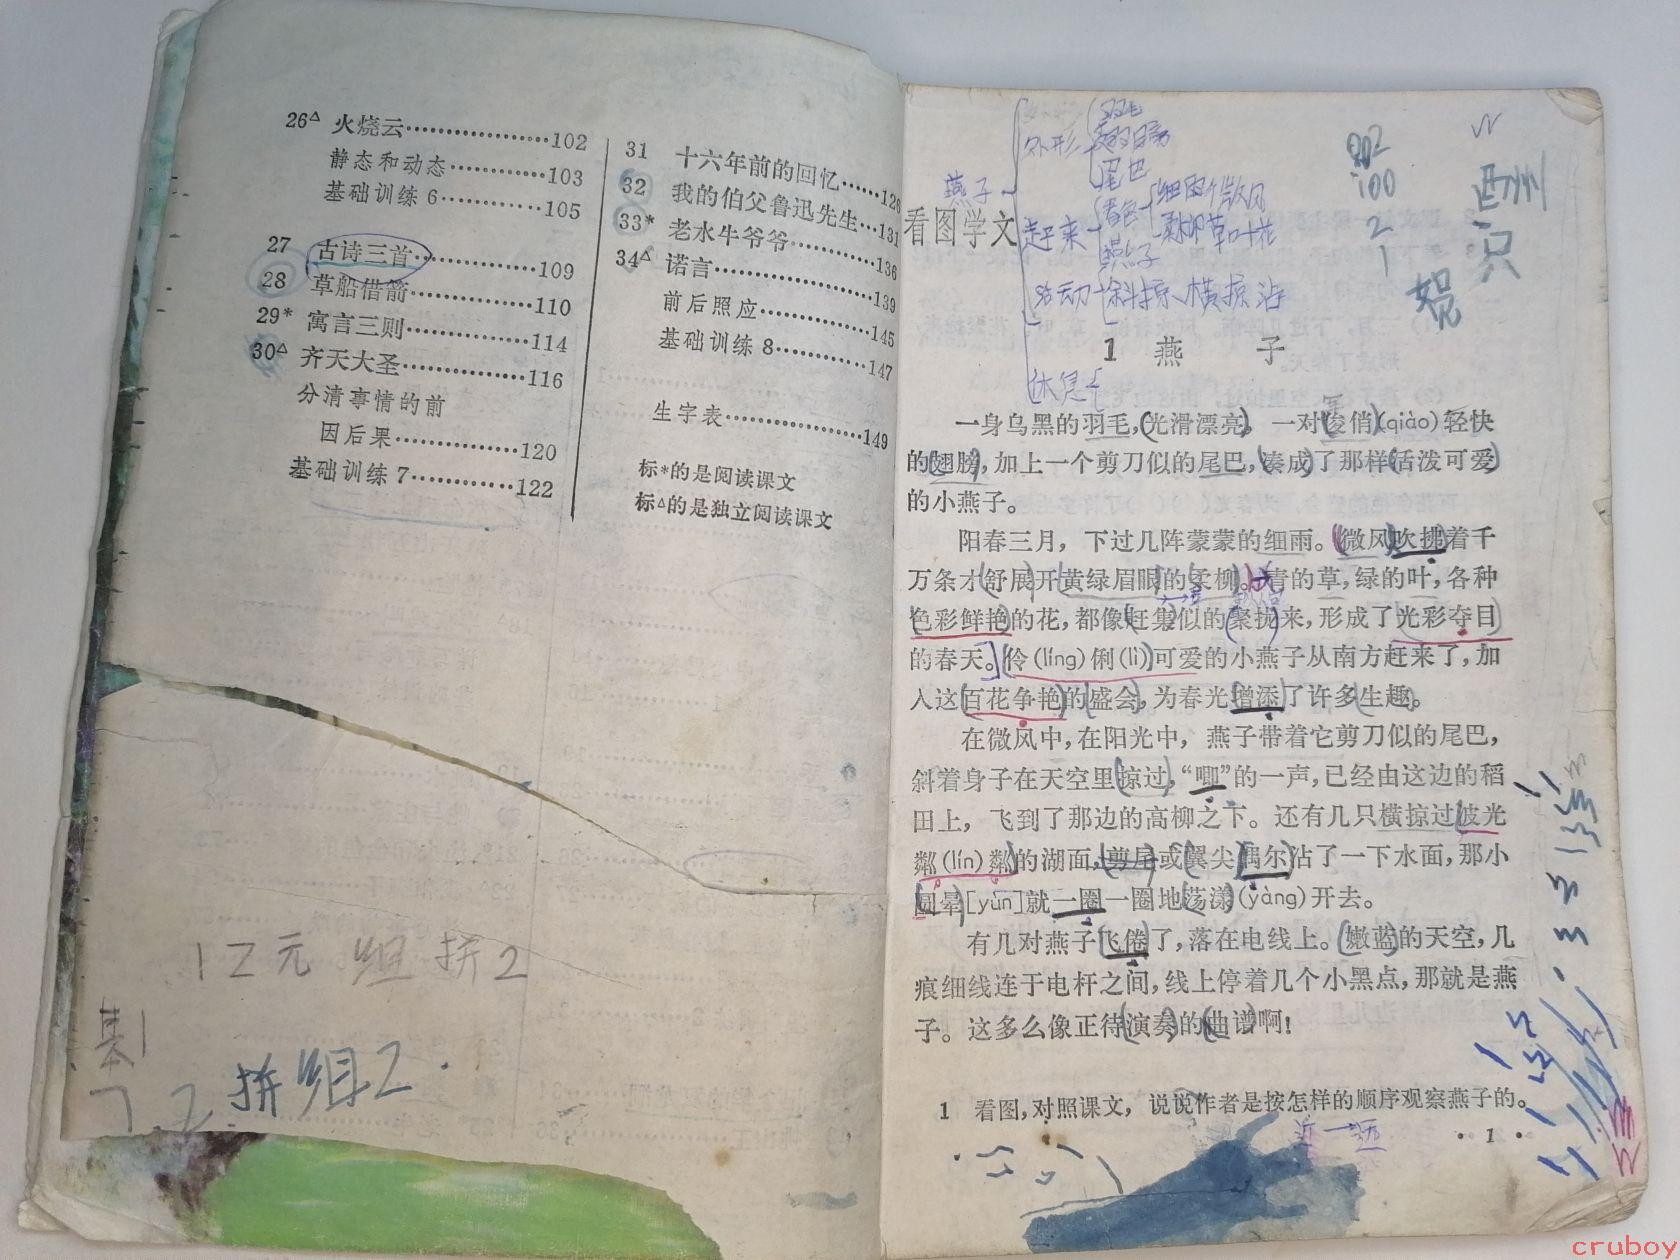 26△ 火烧云………………102
静态和动态…………103
基础训练6…………105
27 古诗三首……………109
28 草船借箭……………110
29* 寓言三则……………114
30△ 齐天大圣……………116
分清事情的前
因后果……………120
基础训练7…………122
31 十六年前的回忆……126
32 我的伯父鲁迅先生…131
33* 老水牛爷爷…………136
34△ 诺言…………………139
前后照应……………145
基础训练8…………147
生字表………………149
标*的是阅读课文
标△的是独立阅读课文
12元 组拼2
基1
7.2拼组2.
燕子
外形
羽毛
翅膀
尾巴
赶来
春色
细雨 微风
柔柳 草 叶 花
燕子
斜掠 横掠 沾
休息
802
100
2
1
看图学文
1 燕 子
一身乌黑的羽毛,光滑漂亮, 一对俊俏(qiào)轻快
的翅膀,加上一个剪刀似的尾巴,凑成了那样活泼可爱
的小燕子。
阳春三月, 下过几阵蒙蒙的细雨。微风吹拂着千
万条才舒展开黄绿眉眼的柔柳。青的草,绿的叶,各种
色彩鲜艳的花,都像赶集似的聚拢来,形成了光彩夺目
的春天。伶(líng)俐(lì)可爱的小燕子从南方赶来了,加
入这百花争艳的盛会,为春光增添了许多生趣。
在微风中,在阳光中, 燕子带着它剪刀似的尾巴,
斜着身子在天空里掠过,“唧”的一声,已经由这边的稻
田上, 飞到了那边的高柳之下。还有几只横掠过波光
粼(lín)粼的湖面,剪尾或翼尖偶尔沾了一下水面,那小
圆晕[yùn]就一圈一圈地荡漾(yàng)开去。
有几对燕子飞倦了,落在电线上。嫩蓝的天空,几
痕细线连于电杆之间,线上停着几个小黑点,那就是燕
子。这多么像正待演奏的曲谱啊!
1 看图,对照课文, 说说作者是按怎样的顺序观察燕子的。
近→远
·1·
cruboy